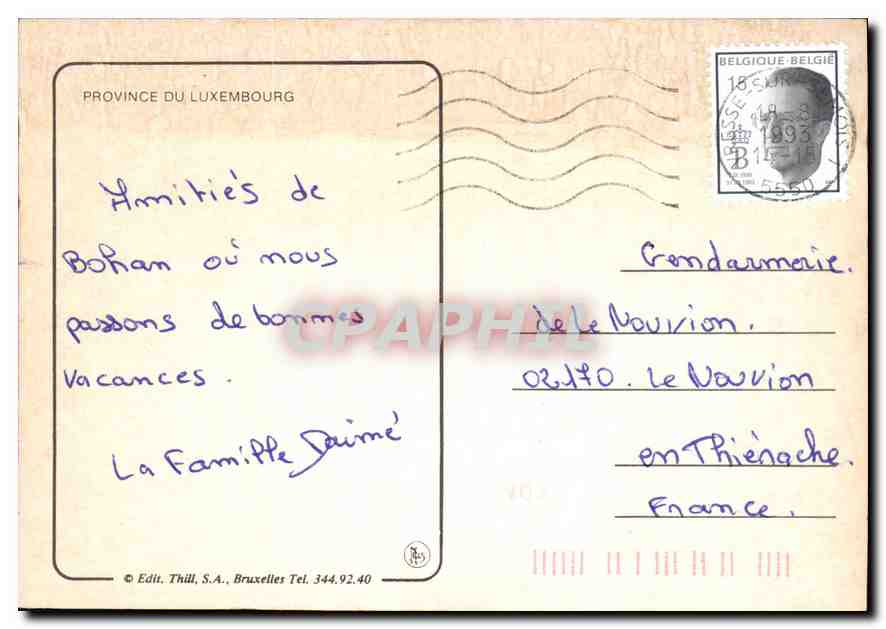 PROVINCE DU LUXEMBOURG
Amitiés de
Bohan où nous
passons de bonnes
vacances.
La Famille Daimé
© Edit. Thill, S.A., Bruxelles Tel. 344.92.40
BELGIQUE-BELGIË
15
1993
14-15
5550
B
Gendarmerie.
de Le Nouvion.
02170. Le Nouvion
en Thiérache.
France.
CPAPHIL